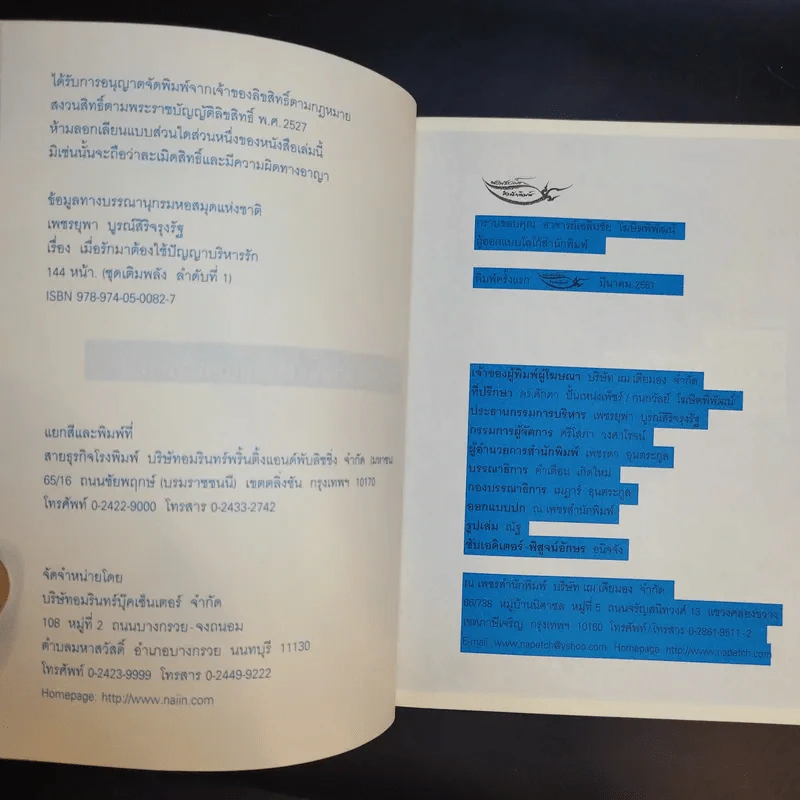 ได้รับการอนุญาตจัดพิมพ์จากเจ้าของลิขสิทธิ์ตามกฎหมาย
สงวนสิทธิ์ตามพระราชบัญญัติลิขสิทธิ์ พ.ศ.2527
ห้ามลอกเลียนแบบส่วนใดส่วนหนึ่งของหนังสือเล่มนี้
มิเช่นนั้นจะถือว่าละเมิดสิทธิ์และมีความผิดทางอาญา
ข้อมูลทางบรรณานุกรมหอสมุดแห่งชาติ
เพชรยุพา บูรณ์สิริจรุงรัฐ
เรื่อง เมื่อรักมาต้องใช้ปัญญาบริหารรัก
144 หน้า. (ชุดเติมพลัง ลำดับที่ 1)
ISBN 978-974-05-0082-7
แยกสีและพิมพ์ที่
สายธุรกิจโรงพิมพ์ บริษัทอมรินทร์พริ้นติ้งแอนด์พับลิชชิ่ง จำกัด (มหาชน
65/16 ถนนชัยพฤกษ์ (บรมราชชนนี) เขตตลิ่งชัน กรุงเทพฯ 10170
โทรศัพท์ 0-2422-9000 โทรสาร 0-2433-2742
จัดจำหน่ายโดย
บริษัทอมรินทร์บุ๊คเซ็นเตอร์ จำกัด
108 หมู่ที่ 2 ถนนบางกรวย-จงถนอม
ตำบลมหาสวัสดิ์ อำเภอบางกรวย นนทบุรี 11130
โทรศัพท์ 0-2423-9999 โทรสาร 0-2449-9222
Homepage: http://www.naiin.com
กราบขอบคุณ อาจารย์เฉลิมชัย โฆษิตพิพัฒน์
ผู้ออกแบบโลโก้สำนักพิมพ์
พิมพ์ครั้งแรก มีนาคม 2551
เจ้าของผู้พิมพ์ผู้โฆษณา บริษัท เฌ เดียมอง จำกัด
ที่ปรึกษา ดร.ศักดา ปั้นเหน่งเพ็ชร / กนกวลัยย์ โฆษิตพิพัฒน์
ประธานกรรมการบริหาร เพชรยุพา บูรณ์สิริจรุงรัฐ
กรรมการผู้จัดการ ศรีโสภา วงศาโรจน์
ผู้อำนวยการสำนักพิมพ์ เพชรดา อุนตระกูล
บรรณาธิการ คำเตือน เกิดใหม่
กองบรรณาธิการ เมฎาร์ อุนตระกูล
ออกแบบปก ณ เพชรสำนักพิมพ์
รูปเล่ม ณัฐ
ซับเอดิเตอร์-พิสูจน์อักษร อนิจจัง
ณ เพชรสำนักพิมพ์ บริษัท เฌ เดียมอง จำกัด
66/738 หมู่บ้านนิศาชล หมู่ที่ 5 ถนนจรัญสนิทวงศ์ 13 แขวงคลองขวาง
เขตภาษีเจริญ กรุงเทพฯ 10160 โทรศัพท์/โทรสาร 0-2881-9511-2
E-mail www.napetch@yahoo.com Homepage http://www.napetch.com